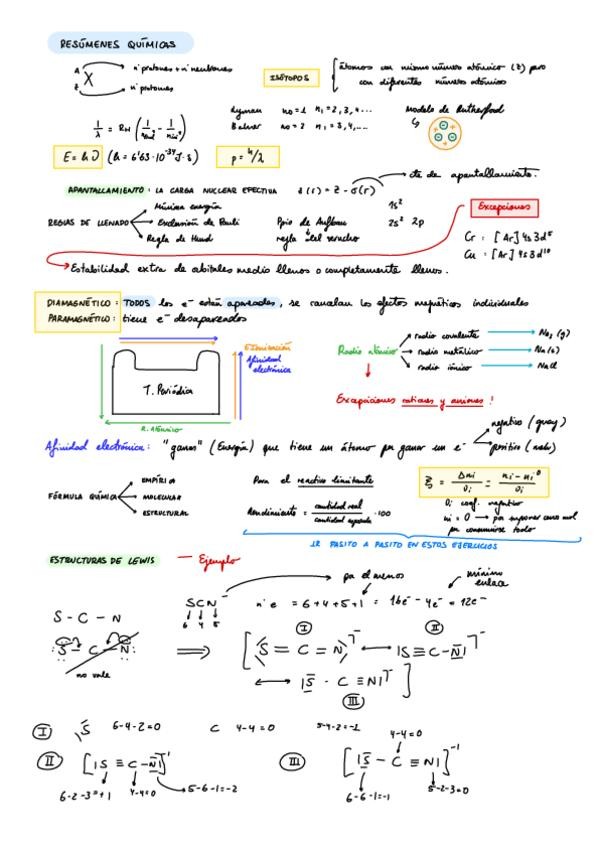 RESÚMENES QUÍMICAS
A X nº protones + nº neutrones
Z nº protones
ISÓTOPOS { átomos con mismo número atómico (Z) pero
con diferentes números atómicos
1/λ = RH (1/n₁² - 1/n₂²)
Lyman n₀=1 nᵢ=2,3,4...
Balmer n₀=2 nᵢ=3,4,...
Modelo de Rutherford
E = h ν (h = 6'63·10⁻³⁴ J·s)
p = h/λ
APANTALLAMIENTO: LA CARGA NUCLEAR EFECTIVA z(r) = Z - σ(r) → cte de apantallamiento.
REGLAS DE LLENADO
Mínima energía
Exclusión de Pauli
Regla de Hund
Ppio de Aufbau
regla del serrucho
1s²
2s² 2p
Excepciones
Cr : [Ar] 4s 3d⁵
Cu : [Ar] 4s 3d¹⁰
→ Estabilidad extra de orbitales medio llenos o completamente llenos.
DIAMAGNÉTICO: TODOS los e⁻ están apareados, se cancelan los efectos magnéticos individuales
PARAMAGNÉTICO: tiene e⁻ desapareados
T. Periódica
R. Atómico
E Ionización
Afinidad
electrónica
Radio atómico
radio covalente → No₂ (g)
radio metálico → Na (s)
radio iónico → NaCl
Excepciones cationes y aniones!
Afinidad electrónica: "ganas" (Energía) que tiene un átomo por ganar un e⁻
negativo (guay)
positivo (nabo)
FÓRMULA QUÍMICA
EMPÍRICA
MOLECULAR
ESTRUCTURAL
Para el reactivo limitante
Rendimiento = cantidad real / cantidad esperada · 100
ξ = Δnᵢ/υᵢ = nᵢ-nᵢ⁰/υᵢ
υᵢ coef. negativo
nᵢ = 0 → por suponer caso mol
por consumirse todo
IR PASITO A PASITO EN ESTOS EJERCICIOS
ESTRUCTURAS DE LEWIS — Ejemplo
por el menos
mínimo
enlace
SCN⁻ nº e⁻ = 6+4+5+1 = 16e⁻ - 4e⁻ = 12e⁻
6 4 5
S - C - N
S - C - N
no vale
⟹ [S = C = N]⁻ ⟷ |S ≡ C - N|⁻
I II
⟷ |S - C ≡ N|⁻ ]
III
I S 6-4-2=0 C 4-4=0 5-4-2=-1
II [|S ≡ C - N|]⁻¹
6-2-3=+1 4-4=0 5-6-1=-2
III [|S - C ≡ N|]⁻¹
4-4=0
6-6-1=-1 5-2-3=0